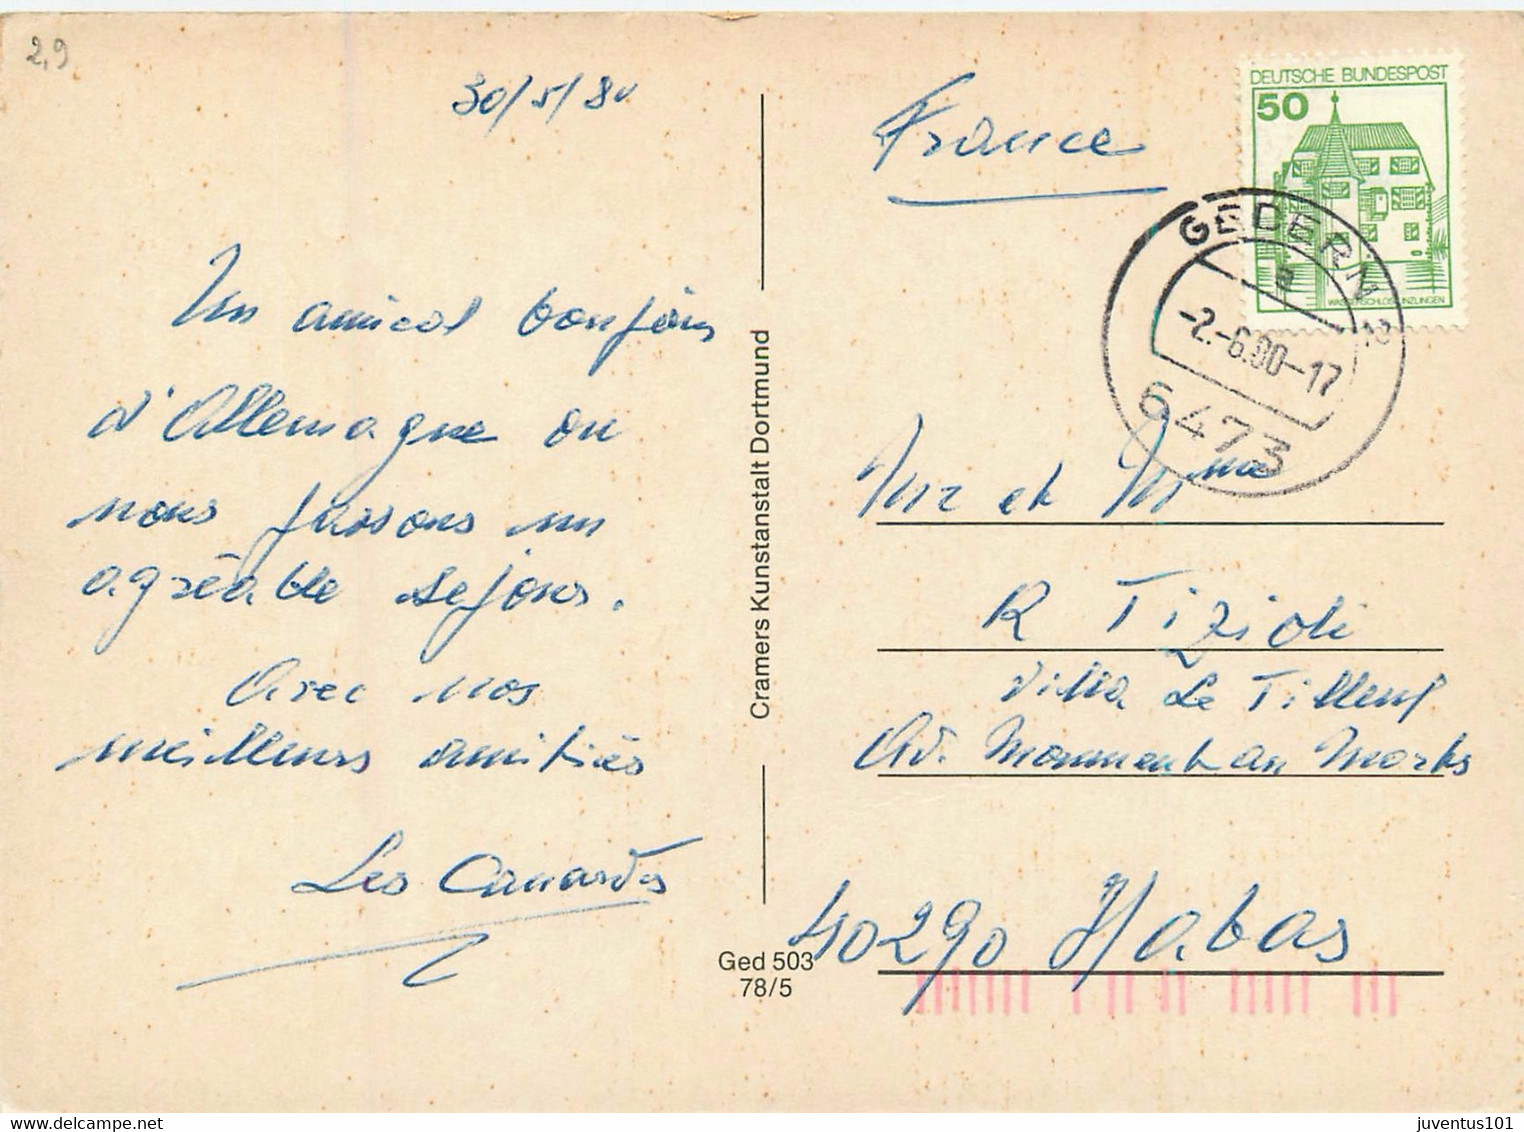 2,9
30/5/80
Un amical bonjour
d'Allemagne où
nous passons un
agréable séjour.
Avec nos
meilleurs amitiés
Les Canardos
Cramers Kunstanstalt Dortmund
Ged 503
78/5
France
DEUTSCHE BUNDESPOST
50
WASSERSCHLOSS INZLINGEN
GEDERN
a
-2.-6.80-17
6473
Mr et Mme
R Tizioli
Villa Le Tilleul
Av. Monument aux Morts
40290 Habas
juventus101